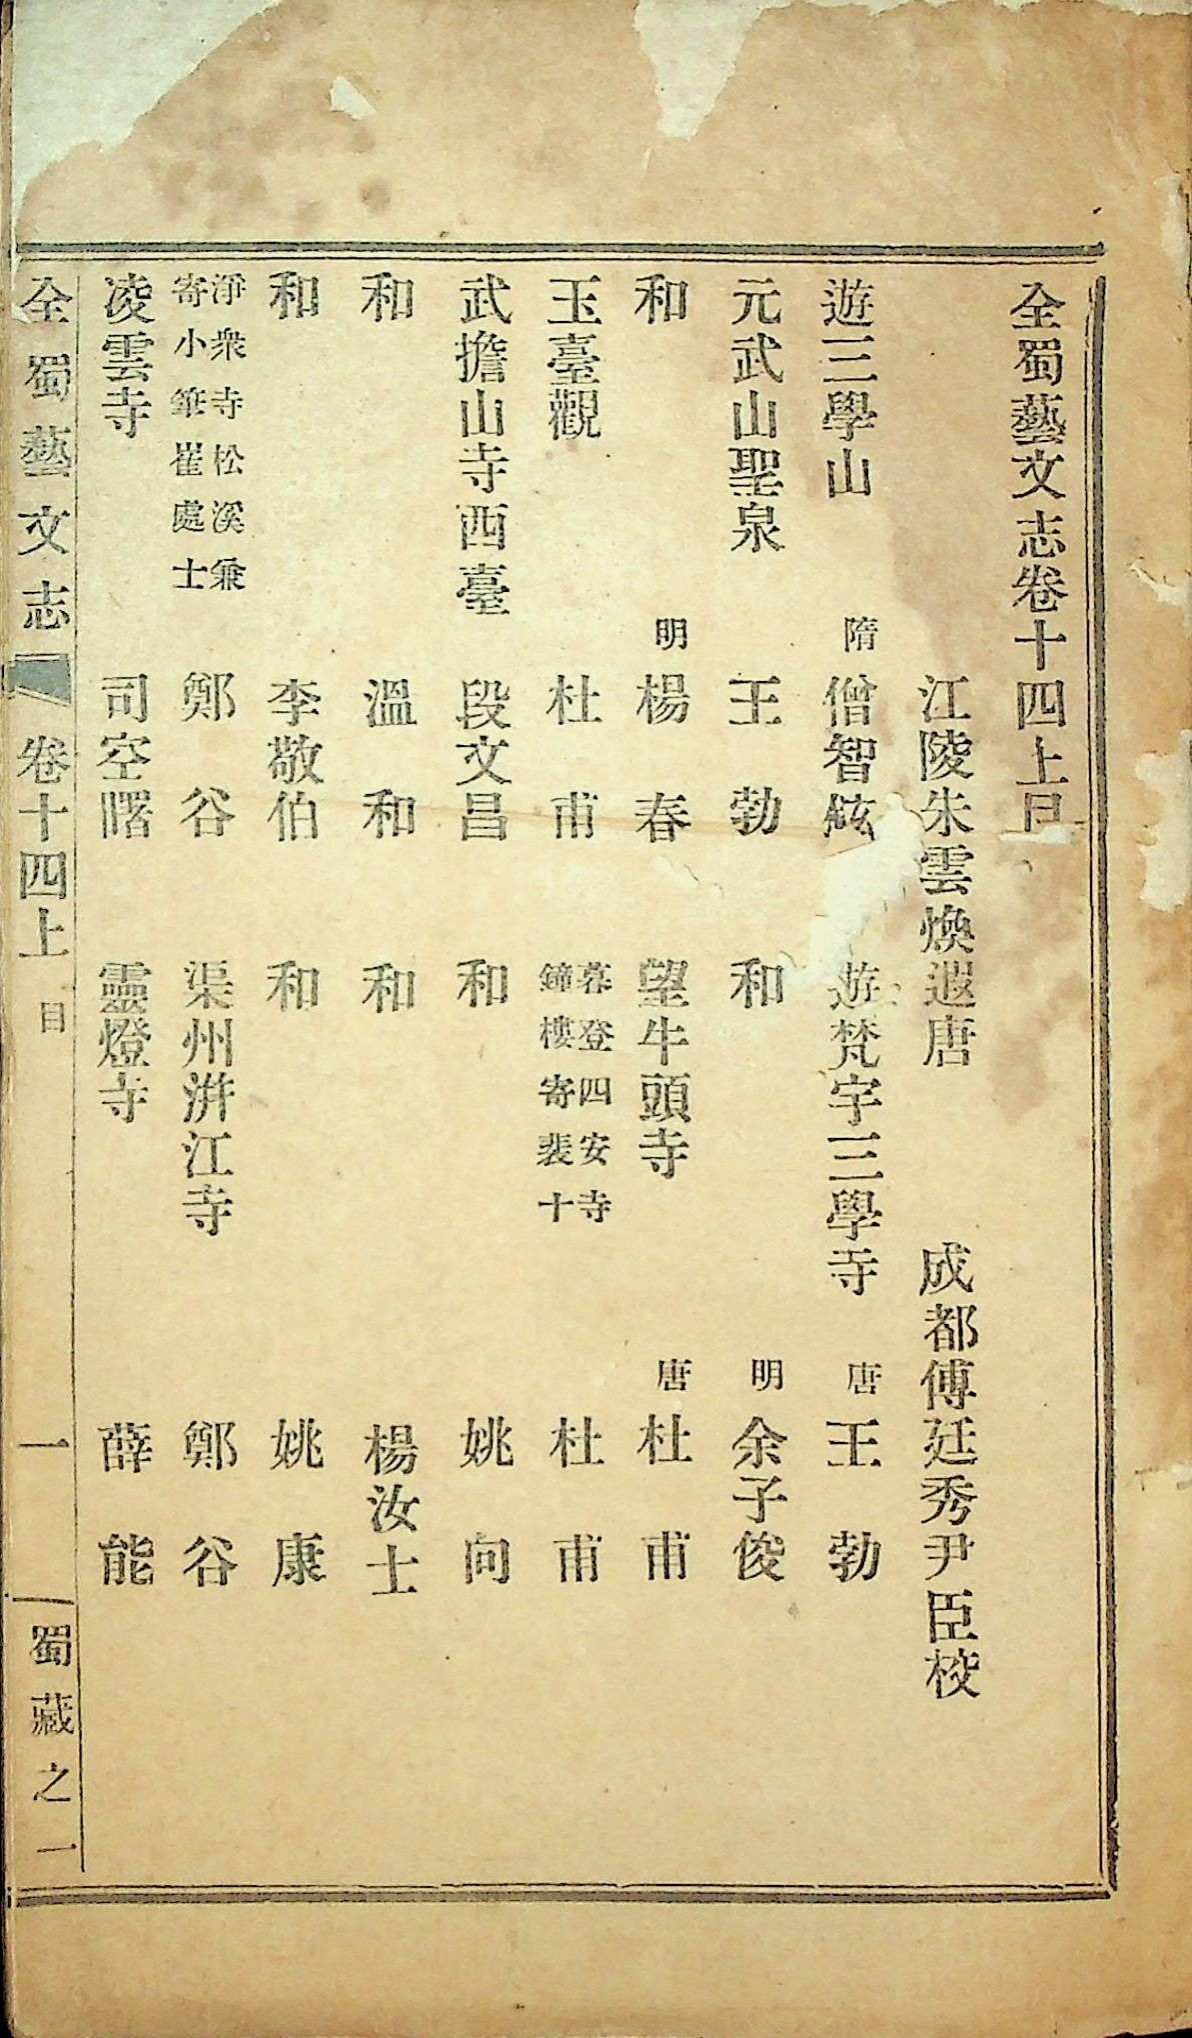 全蜀藝文志卷十四上目
江陵朱雲煥遐唐 成都傅廷秀尹臣校
遊三學山 隋 僧智炫 遊梵宇三學寺 唐 王勃
元武山聖泉 王勃 和 明 余子俊
和 明 楊春 望牛頭寺 唐 杜甫
玉臺觀 杜甫 暮登四安寺鐘樓寄裴十 杜甫
武擔山寺西臺 段文昌 和 姚向
和 溫和 和 楊汝士
和 李敬伯 和 姚康
淨衆寺松溪兼寄小筆崔處士 鄭谷 渠州洴江寺 鄭谷
凌雲寺 司空曙 靈燈寺 薛能
全蜀藝文志 卷十四上 目 一 蜀藏之一